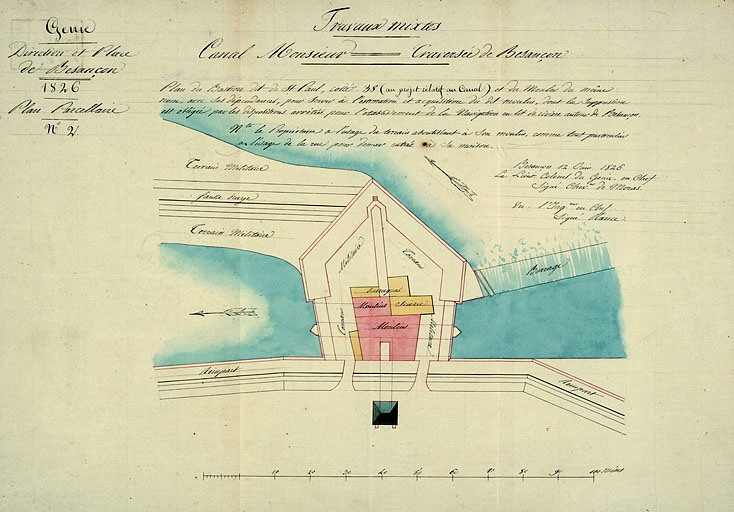 Genie
Direction et Place
de Besançon
1826
Plan Parcellaire
N° 2
Travaux mixtes
Canal Monsieur Traversée de Besançon
Plan du Bastion dit de St Paul, coté 35 (au projet relatif au Canal) et du Moulin du même
nom, avec ses dépendances, pour servir à l'estimation et acquisition du dit moulin, dont la suppression
est obligée par les dispositions arrêtées pour l'établissement de la Navigation en lit de rivière autour de Besançon.
Nta le Propriétaire a l'usage du terrain aboutissant à son moulin, comme tout particulier
a l'usage de la rue pour donner entrée de sa maison.
Besançon 12 Juin 1826
Le Lieut Colonel du Génie en Chef
Signé Chev. de Moras
Vu. l'Ingr en Chef
Signé
Terrain Militaire
fausse braye
Terrain Militaire
Militaire
Terrain
Barrage
Baraques
Moulins
Scierie
Moulins
Terrain
Militaire
Rempart
Rempart
10 20 30 40 50 60 70 80 90 100 mètres